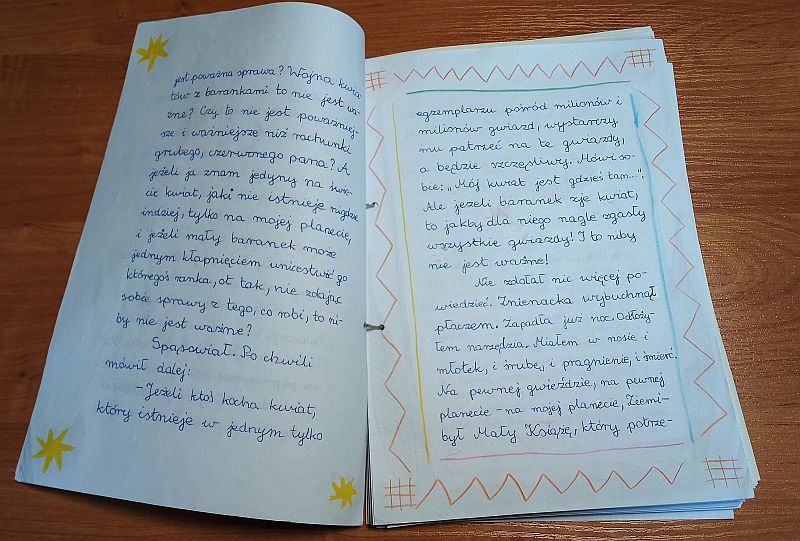 jest poważna sprawa? Wojna kwia-
tów z barankami to nie jest wa-
żne? Czy to nie jest poważniej-
sze i ważniejsze niż rachunki
grubego, czerwonego pana? A
jeżeli ja znam jedyny na świe-
cie kwiat, jaki nie istnieje nigdzie
indziej, tylko na mojej planecie,
i jeżeli mały baranek może
jednym kłapnięciem unicestwić go
któregoś ranka, ot tak, nie zdając
sobie sprawy z tego, co robi, to ni-
by nie jest ważne?
Spąsowiał. Po chwili
mówił dalej:
- Jeżeli ktoś kocha kwiat,
który istnieje w jednym tylko
egzemplarzu pośród milionów i
milionów gwiazd, wystarczy
mu patrzeć na te gwiazdy,
a będzie szczęśliwy. Mówi so-
bie: „Mój kwiat jest gdzieś tam..."
Ale jeżeli baranek zje kwiat,
to jakby dla niego nagle zgasły
wszystkie gwiazdy! I to niby
nie jest ważne!
Nie zdołał nic więcej po-
wiedzieć. Znienacka wybuchnął
płaczem. Zapadła już noc. Odłoży-
łem narzędzia. Miałem w nosie i
młotek, i śrubę, i pragnienie, i śmierć.
Na pewnej gwieździe, na pewnej
planecie - na mojej planecie, Ziemi-
był Mały Książę, który potrze-